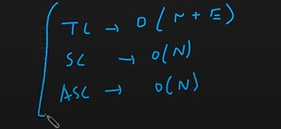 TC → O(N + E)
SC → O(N)
ASC → O(N)